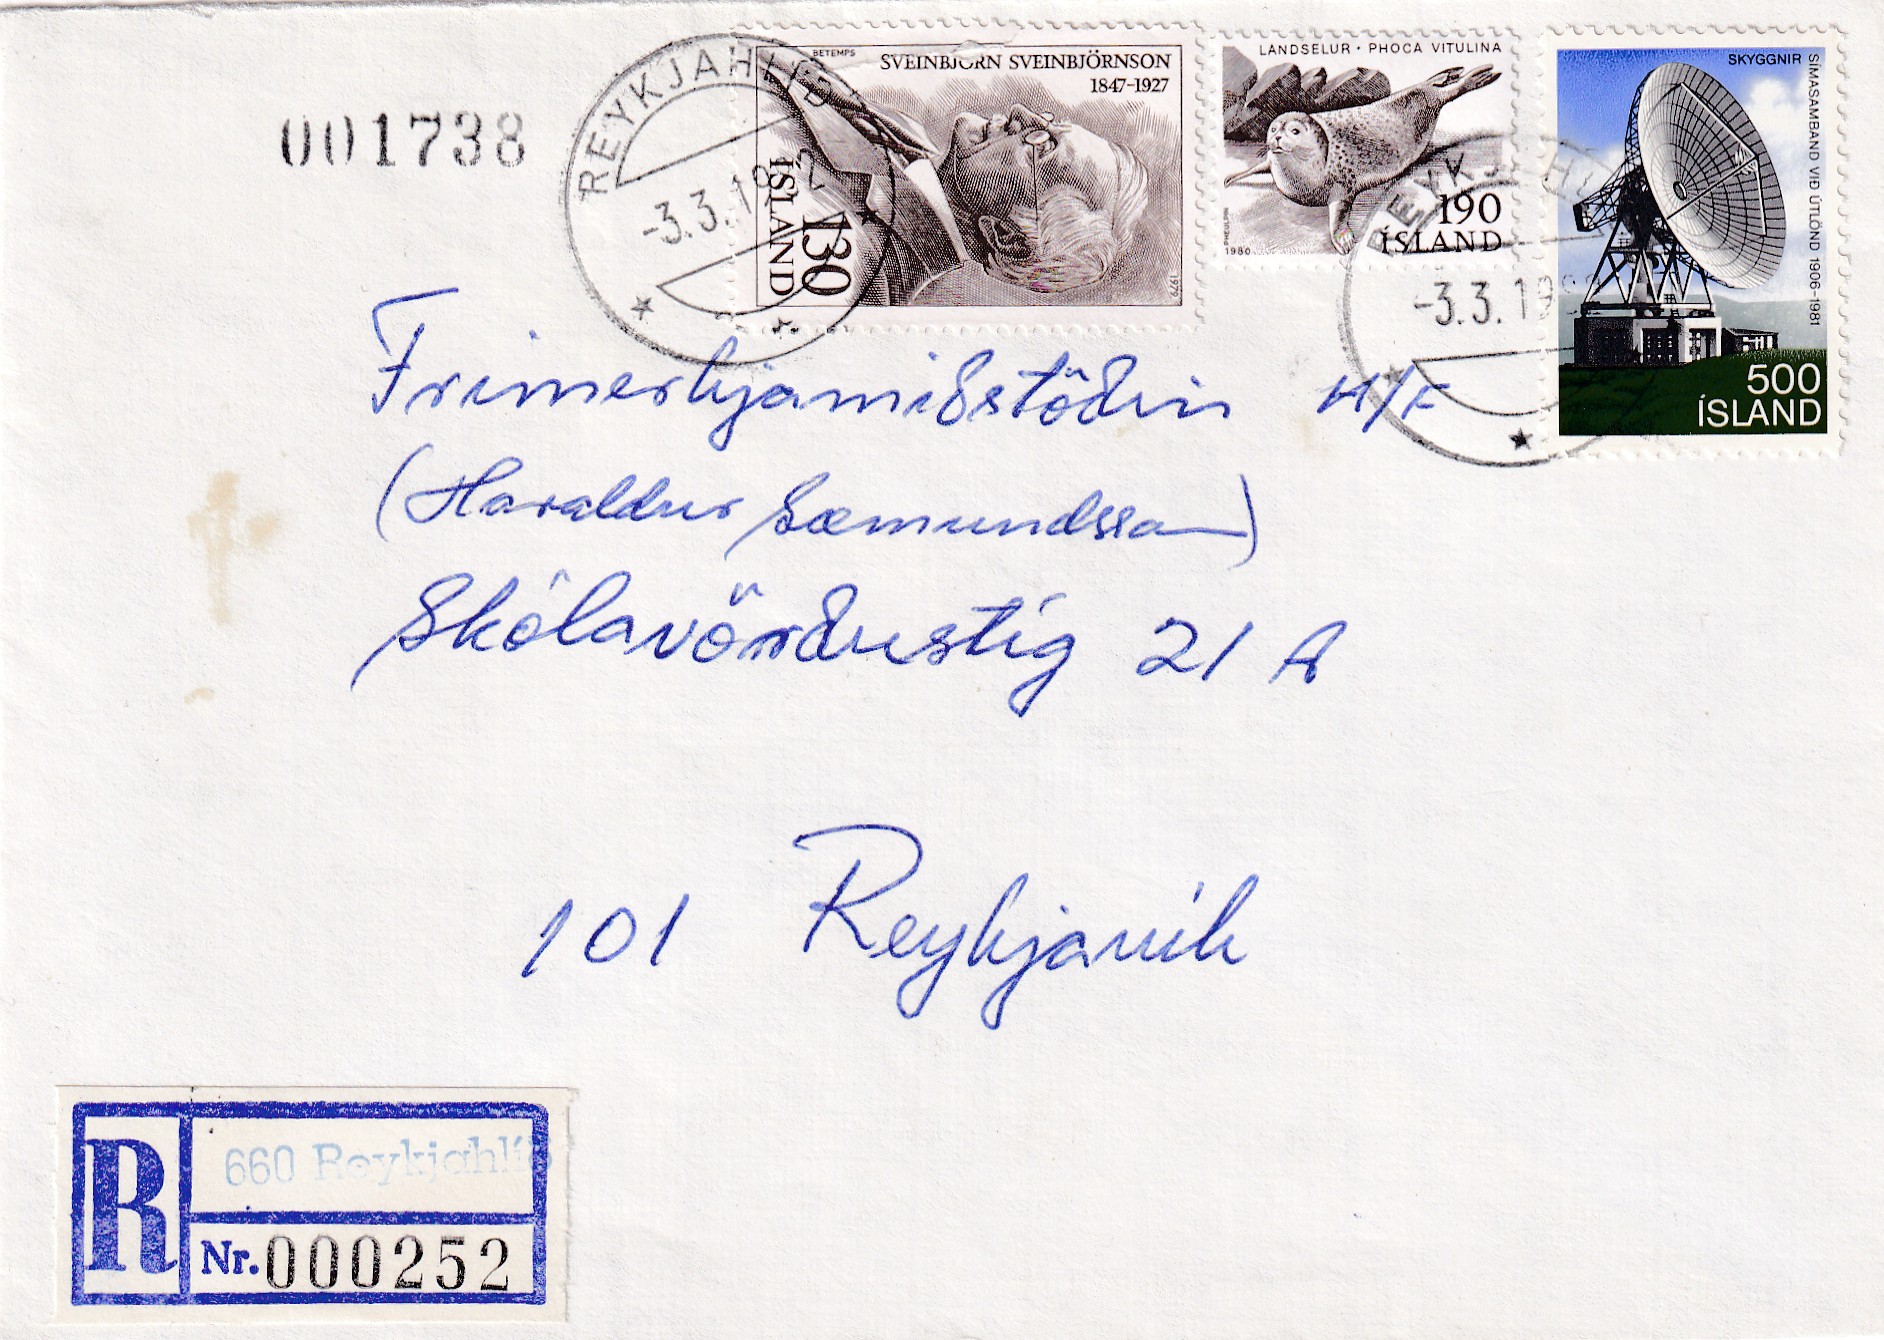 001738
REYKJAHLÍÐ
-3.3.1982
BETEMPS
SVEINBJÖRN SVEINBJÖRNSON
1847-1927
130
ÍSLAND
1979
LANDSELUR · PHOCA VITULINA
190
ÍSLAND
PHEULPIN
1980
REYKJAHL
-3.3.19
SKYGGNIR
SÍMASAMBAND VIÐ ÚTLÖND 1906-1981
500
ÍSLAND
Frímerkjamiðstöðin H/F
(Haraldur Sæmundsson)
Skólavörðustíg 21 A
101 Reykjavík
R
660 Reykjahlíð
Nr. 000252